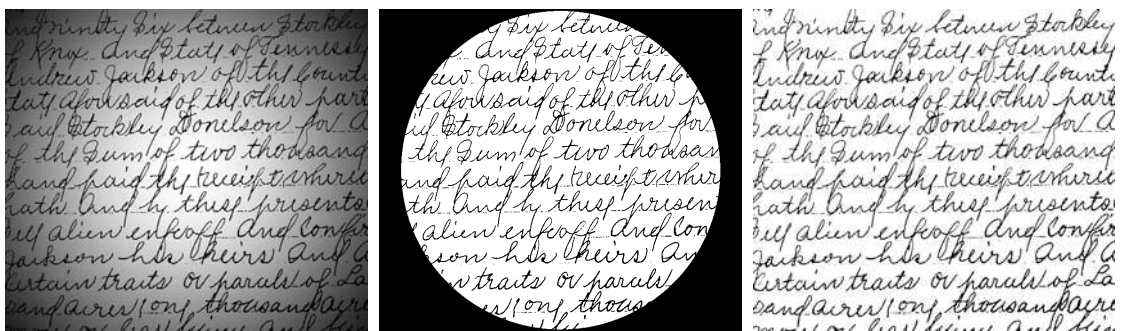 and Ninety Six between Stockley
of Knox and State of Tennessey
Andrew Jackson of the Count
tate aforesaid of the other part
said Stockley Donelson for a
of the Sum of two thousand
hand paid the receipt where
hath and by these presents
ell alien enfeoff and Confir
Jackson his heirs and a
Certain traits or parcels of La
sand acres one thousand acre
y Six between
and State of Ten
rew Jackson of the Co
aforesaid of the other p
aid Stockley Donelson for
the Sum of two thousan
and paid the receipt where
th and by these present
alien enfeoff and Con
son his heirs an
ain traits or parcels
es one thous
and Ninety Six between Stockley
of Knox and State of Tennessey
Andrew Jackson of the Count
tate aforesaid of the other part
said Stockley Donelson for a
of the Sum of two thousand
hand paid the receipt where
hath and by these presents
ell alien enfeoff and Confir
Jackson his heirs and a
Certain traits or parcels of La
sand acres one thousand acre